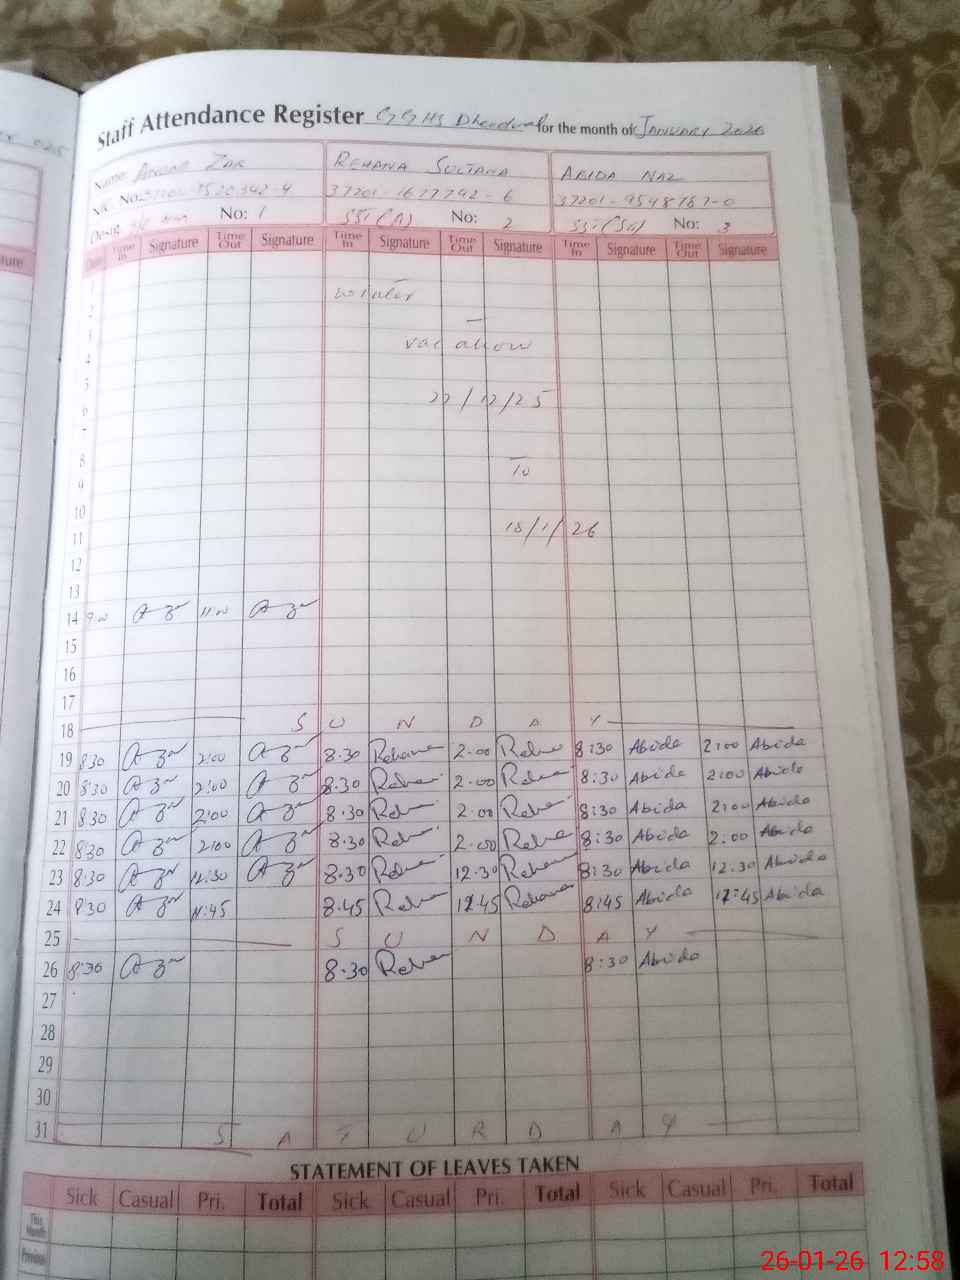 Staff Attendance Register GGHS for the month of: JANUARY 2026
Name: ZAR REHANA SULTANA ABIDA NAZ
37201-1677792-6 37201-9548767-0
Desig. No: 1 SST (A) No: 2 No: 3
Date Time In Signature Time Out Signature Time In Signature Time Out Signature Time In Signature Time Out Signature
1
winter
2
3
vacation
4
5
22/12/25
6
7
8
To
9
10
18/1/26
11
12
13
14 9:00 11:00
15
16
17
18 S U N D A Y
19 8:30 2:00 8:30 Rehana 2:00 8:30 Abida 2:00 Abida
20 8:30 2:00 8:30 2:00 8:30 Abida 2:00 Abida
21 8:30 2:00 8:30 2:00 8:30 Abida 2:00 Abida
22 8:30 2:00 8:30 2:00 8:30 Abida 2:00 Abida
23 8:30 12:30 8:30 12:30 8:30 Abida 12:30 Abida
24 8:45 Rehana 8:45 Abida 12:45 Abida
25 S U N D A Y
26 8:30 8:30 8:30 Abida
27
28
29
30
31 S A T U R D A Y
STATEMENT OF LEAVES TAKEN
Sick Casual Pri. Total Sick Casual Pri. Total Sick Casual Pri. Total
This Month
Previous
26-01-26 12:58